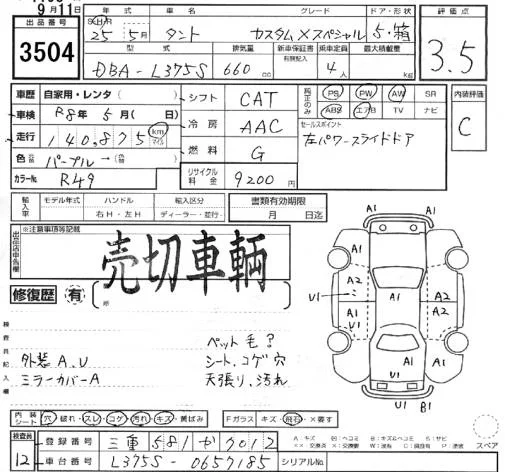 9月11日
出品番号
3504
年式 車名 グレード ドア・形状 評価点
S・H・R
25年 5月 タント カスタムXスペシャル 5・箱 3.5
型式 排気量 新車保証書 乗車定員 最大積載量
有償記入
DBA-L375S 660cc 4人 kg
車歴 自家用・レンタ( ) シフト CAT
PS PW AW SR
ABS エアB TV ナビ
内装評価
C
車検 R8年 5月( 日) 冷房 AAC
セールスポイント
左パワースライドドア
走行 140,875 km マイル 燃料 G
色 パープル→
カラーNo. R49 リサイクル料金 9200円
輸入車 モデル年式 ハンドル 輸入区分 書類有効期限
右H・左H ディーラー・並行 月 日迄
※注意事項等記載
売切車輌
修復歴 有
検査員記入欄
外装A.U
ミラーカバーA
ペット毛?
シート、コゲ穴
天張り、汚れ
A1
A1 A1
A2 A2
U1 A1 A1
A1 U1 A1
U1
U1 B1
内装シート 穴 破れ・スレ・コゲ・汚れ・キズ・黄ばみ Fガラス キズ・飛石・×要す
検査員
12
登録番号 三重581か7012
車台番号 L375S-0657185 シリアルNo.
A:キズ
スペア